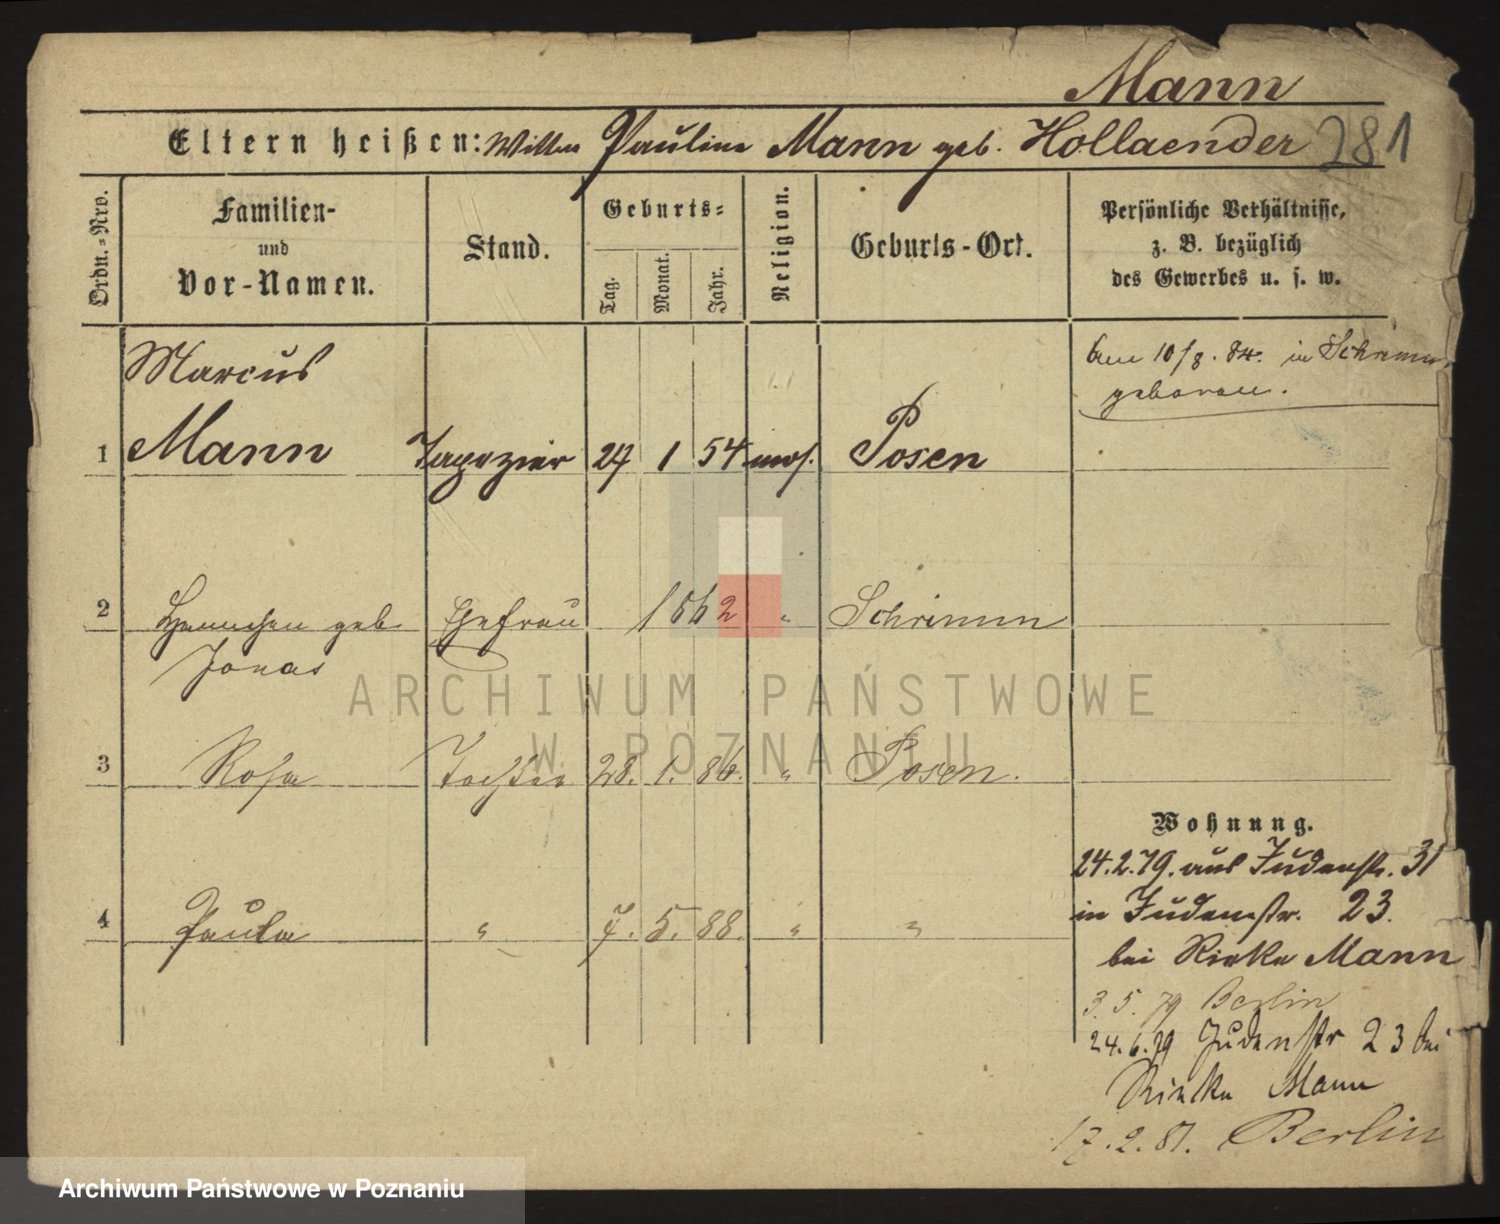 Mann
Eltern heißen: Pauline Mann geb. Hollaender 281
Ordn.=Nro.
Familien-
und
Vor-Namen.
Stand.
Geburts=
Tag.
Monat.
Jahr.
Religion.
Geburts-Ort.
Persönliche Verhältnisse,
z. B. bezüglich
des Gewerbes u. s. w.
10/8. 84. in Schrimm
geboren.
Marcus
1 Mann Tapezier 27 1 54 mos. Posen
2 Hannchen geb Ehefrau 1862 " Schrimm
Jonas
ARCHIWUM PAŃSTWOWE
W POZNANIU
3 Rosa Tochter 28. 1. 86. " Posen.
Wohnung.
24.2.79. aus Judenstr. 31
in Judenstr. 23.
bei Rieke Mann
4 Paula " 7. 5. 88. " "
3. 5. 79 Berlin
24.6.79 Judenstr 23 bei
Rieke Mann
17.2.81. Berlin
Archiwum Państwowe w Poznaniu